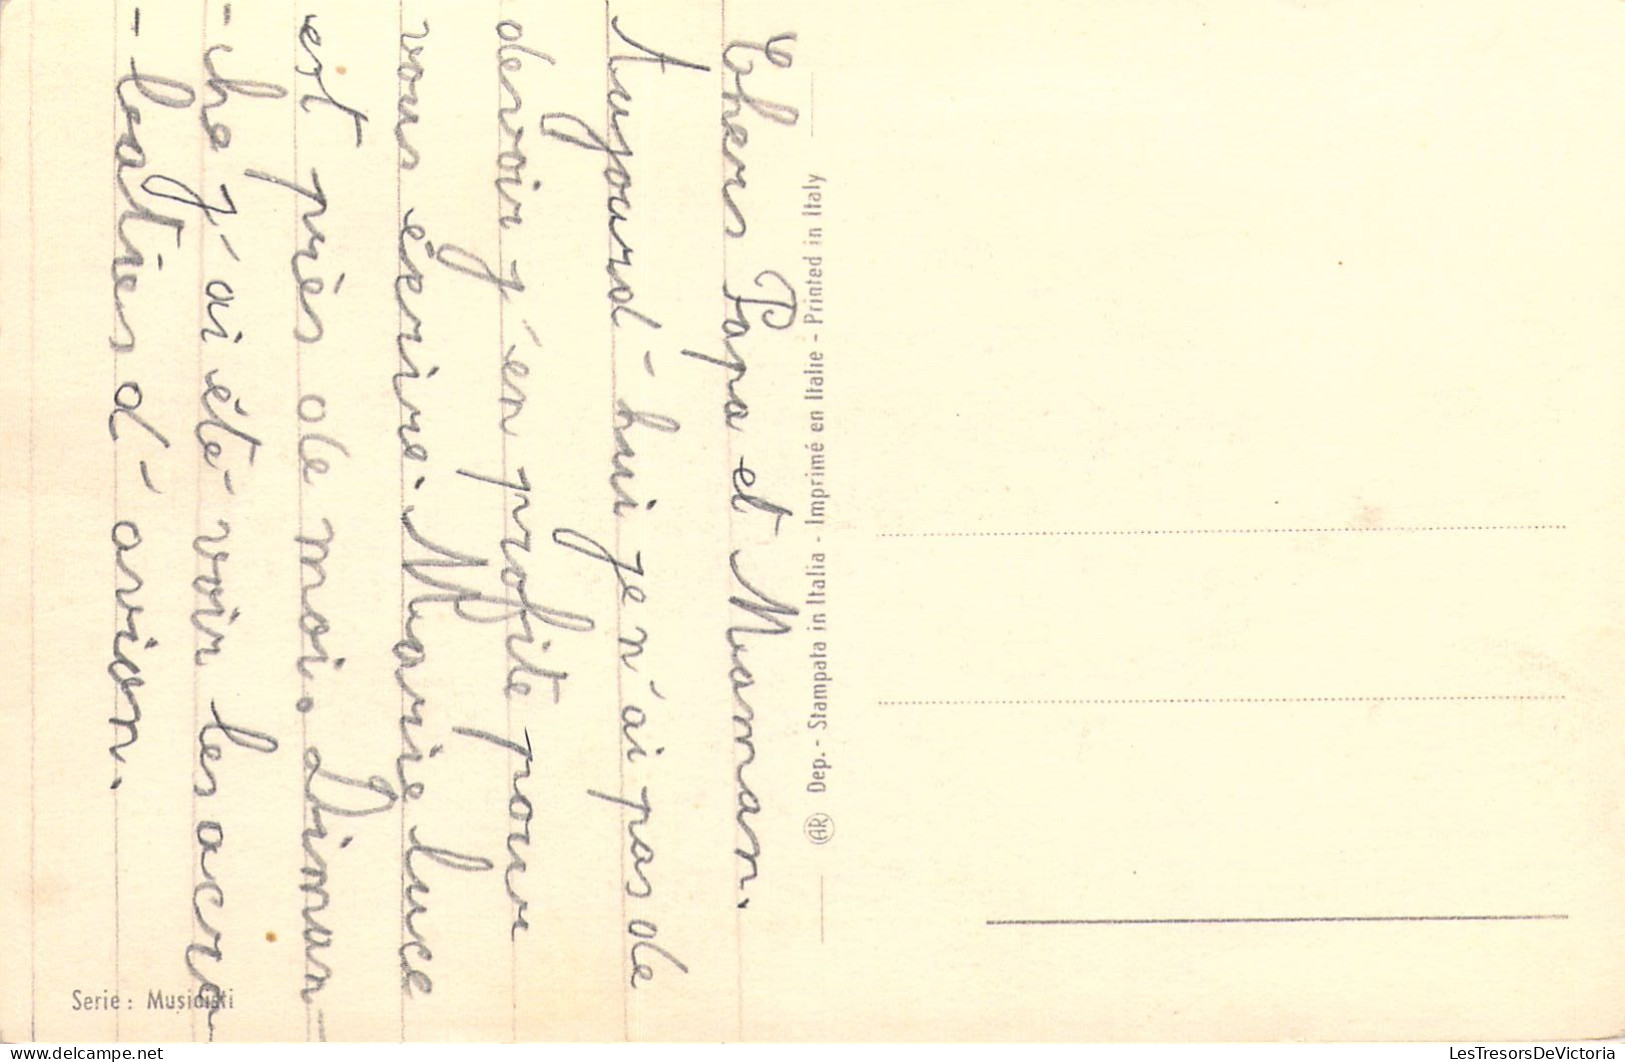 Chers Papa et Maman.
Aujourd-hui je n'ai pas de
devoir j'en profite pour
vous écrire. Marie Luce
est près de moi. Diman-
-che j'ai été-voir les acro
-baties d'avion.
AR Dep. - Stampata in Italia - Imprimé en Italie - Printed in Italy
Serie : Musicisti
LesTresorsDeVictoria
www.delcampe.net